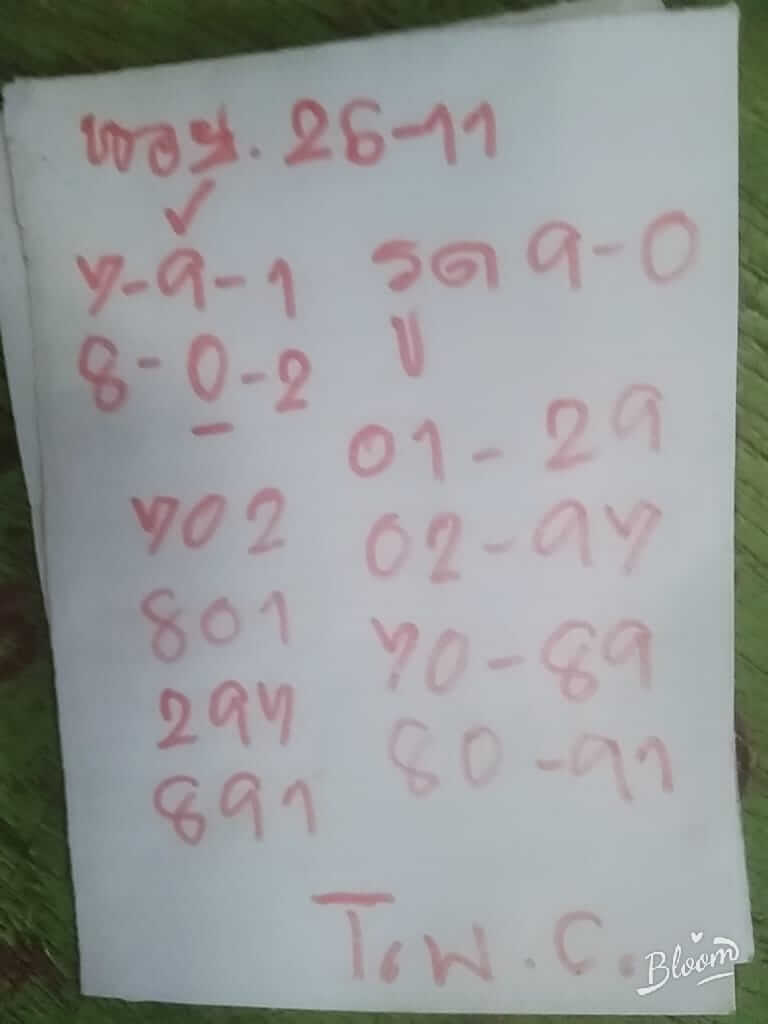 ฮอย. 26-11
✓
7-9-1
8-0-2
702
801
297
891
รูด 9-0
บ
01-29
02-97
70-89
80-91
Bloom